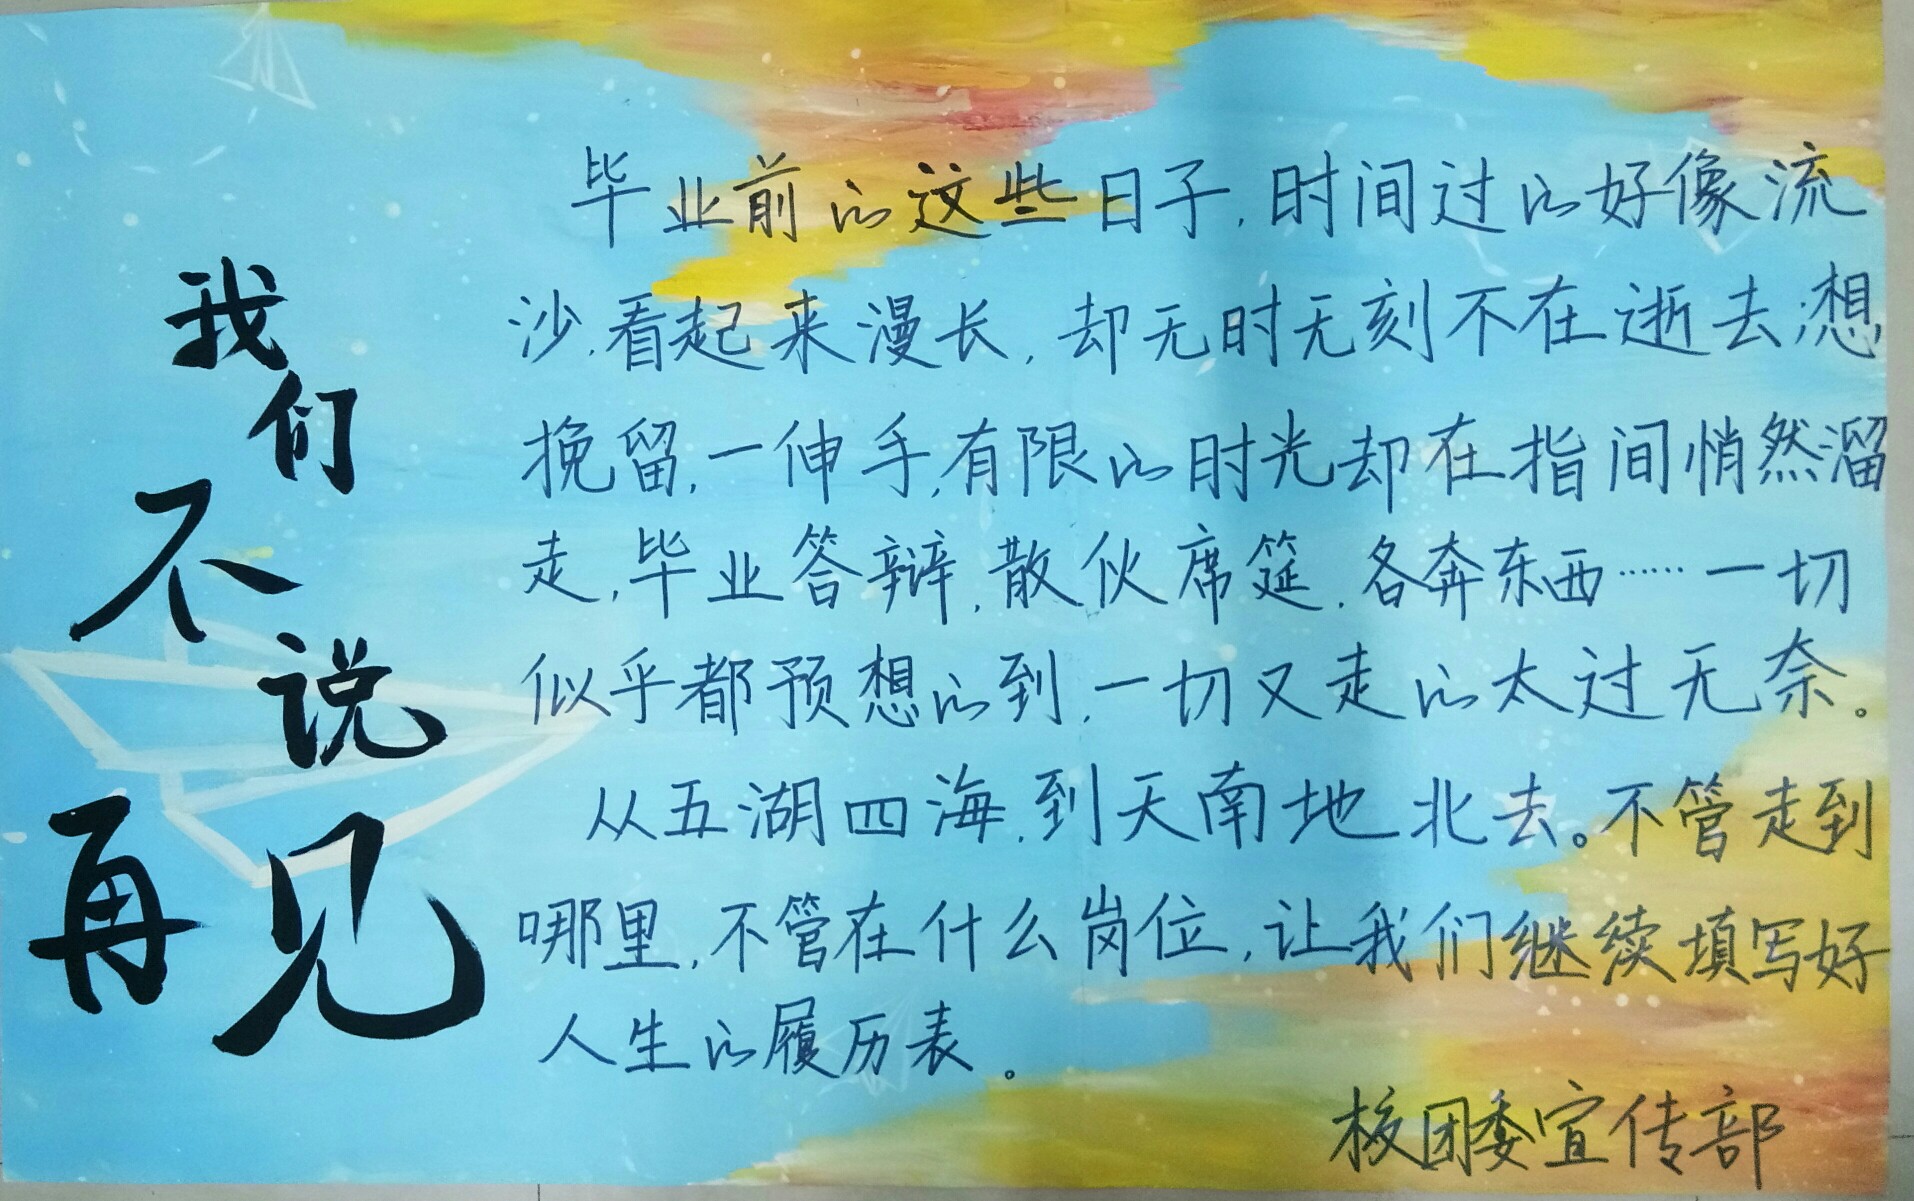 我们不说再见
毕业前的这些日子,时间过的好像流
沙,看起来漫长,却无时无刻不在逝去;想
挽留,一伸手,有限的时光却在指间悄然溜
走,毕业答辩,散伙席筵,各奔东西……一切
似乎都预想的到,一切又走的太过无奈。
从五湖四海,到天南地北去。不管走到
哪里,不管在什么岗位,让我们继续填写好
人生的履历表。
校团委宣传部